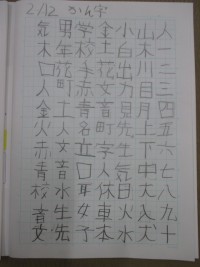 2/12 かん字
人一二三四五六七八九十
山木川目月上下中大入犬
小白出力見先生気日火水
金土花文音町字人休車本
学校手赤青名立口耳女子
男年花町土人文音水生先
気木口人金火赤青校音文